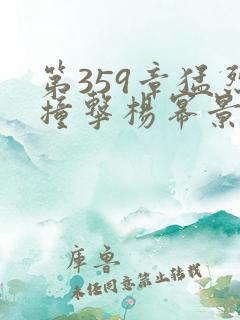 第359章猛烈
撞撃杨幂景
库鲁
未经同意禁止转载